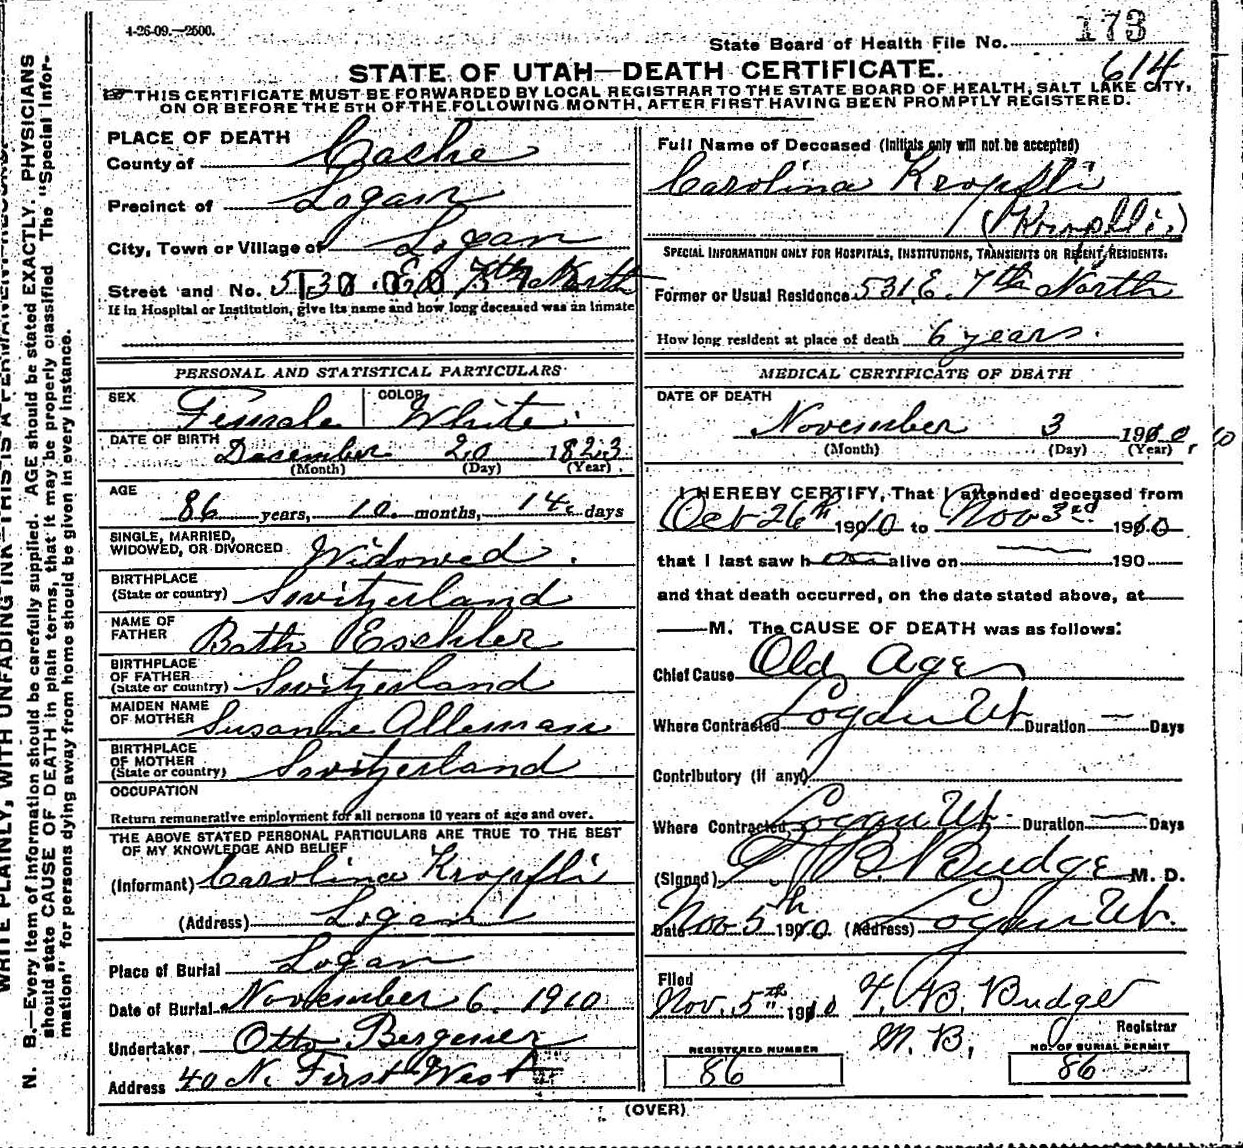 4-26-09.—2500.
173
State Board of Health File No.
614
STATE OF UTAH—DEATH CERTIFICATE.
THIS CERTIFICATE MUST BE FORWARDED BY LOCAL REGISTRAR TO THE STATE BOARD OF HEALTH, SALT LAKE CITY,
ON OR BEFORE THE 5TH OF THE FOLLOWING MONTH, AFTER FIRST HAVING BEEN PROMPTLY REGISTERED.
PLACE OF DEATH
County of Cache
Precinct of Logan
City, Town or Village of Logan
Street and No. 530 E 7th North
If in Hospital or Institution, give its name and how long deceased was an inmate
PERSONAL AND STATISTICAL PARTICULARS
SEX Female COLOR White
DATE OF BIRTH December 20 1823
(Month) (Day) (Year)
AGE
86 years, 10 months, 14 days
SINGLE, MARRIED,
WIDOWED, OR DIVORCED Widowed.
BIRTHPLACE
(State or country) Switzerland
NAME OF
FATHER Bath Eschler
BIRTHPLACE
OF FATHER
(State or country) Switzerland
MAIDEN NAME
OF MOTHER Susanne Alleman
BIRTHPLACE
OF MOTHER
(State or country) Switzerland
OCCUPATION
Return remunerative employment for all persons 10 years of age and over.
THE ABOVE STATED PERSONAL PARTICULARS ARE TRUE TO THE BEST
OF MY KNOWLEDGE AND BELIEF
(Informant) Carolina Kropfli
(Address) Logan
Place of Burial Logan
Date of Burial November 6. 1910
Undertaker Otto Bergener
Address 40 N. First West
Full Name of Deceased (Initials only will not be accepted)
Carolina Kropfli
SPECIAL INFORMATION ONLY FOR HOSPITALS, INSTITUTIONS, TRANSIENTS OR RECENT RESIDENTS.
Former or Usual Residence 531 E. 7th North
How long resident at place of death 6 years.
MEDICAL CERTIFICATE OF DEATH
DATE OF DEATH
November 3 1910 10
(Month) (Day) (Year)
I HEREBY CERTIFY, That I attended deceased from
Oct 26th 1910 to Nov 3rd 1910
that I last saw h alive on 190
and that death occurred, on the date stated above, at
M. The CAUSE OF DEATH was as follows:
Chief Cause Old Age
Where Contracted Logan Ut Duration — Days
Contributory (if any)
Where Contracted Logan Ut. Duration — Days
(Signed) Budge M. D.
Date Nov 5th 1910 (Address) Logan Ut.
Filed
Nov. 5th 1910 T. B. Budge
Registrar
M. D.
REGISTERED NUMBER
86
NO. OF BURIAL PERMIT
86
(OVER)
WRITE PLAINLY, WITH UNFADING INK—THIS IS A PERMANENT RECORD.
N. B.—Every item of information should be carefully supplied. AGE should be stated EXACTLY. PHYSICIANS
should state CAUSE OF DEATH in plain terms, that it may be properly classified. The "Special Infor-
mation" for persons dying away from home should be given in every instance.